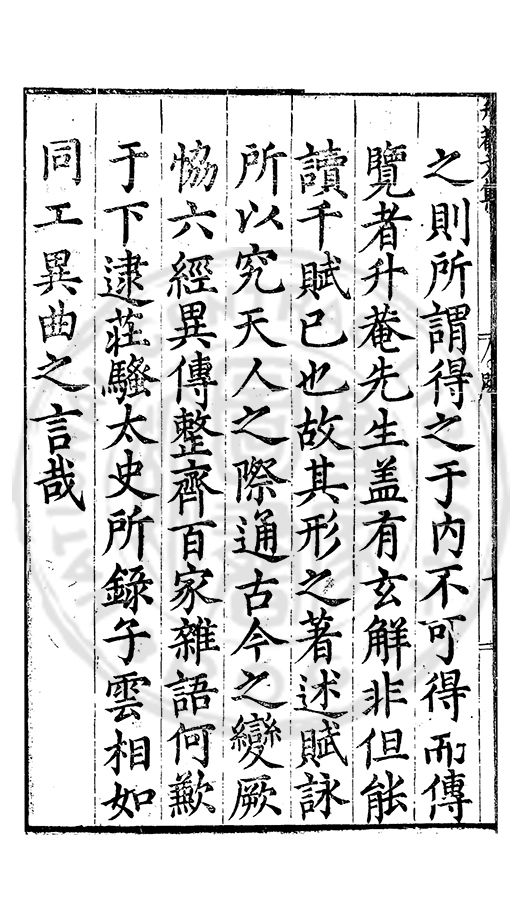 之則所謂得之于內不可得而傳
覽者升菴先生盖有玄解非但能
讀千賦已也故其形之著述賦詠
所以究天人之際通古今之變厥
恊六經異傳整齊百家雜語何歉
于下逮莊騷太史所錄子雲相如
同工異曲之言哉